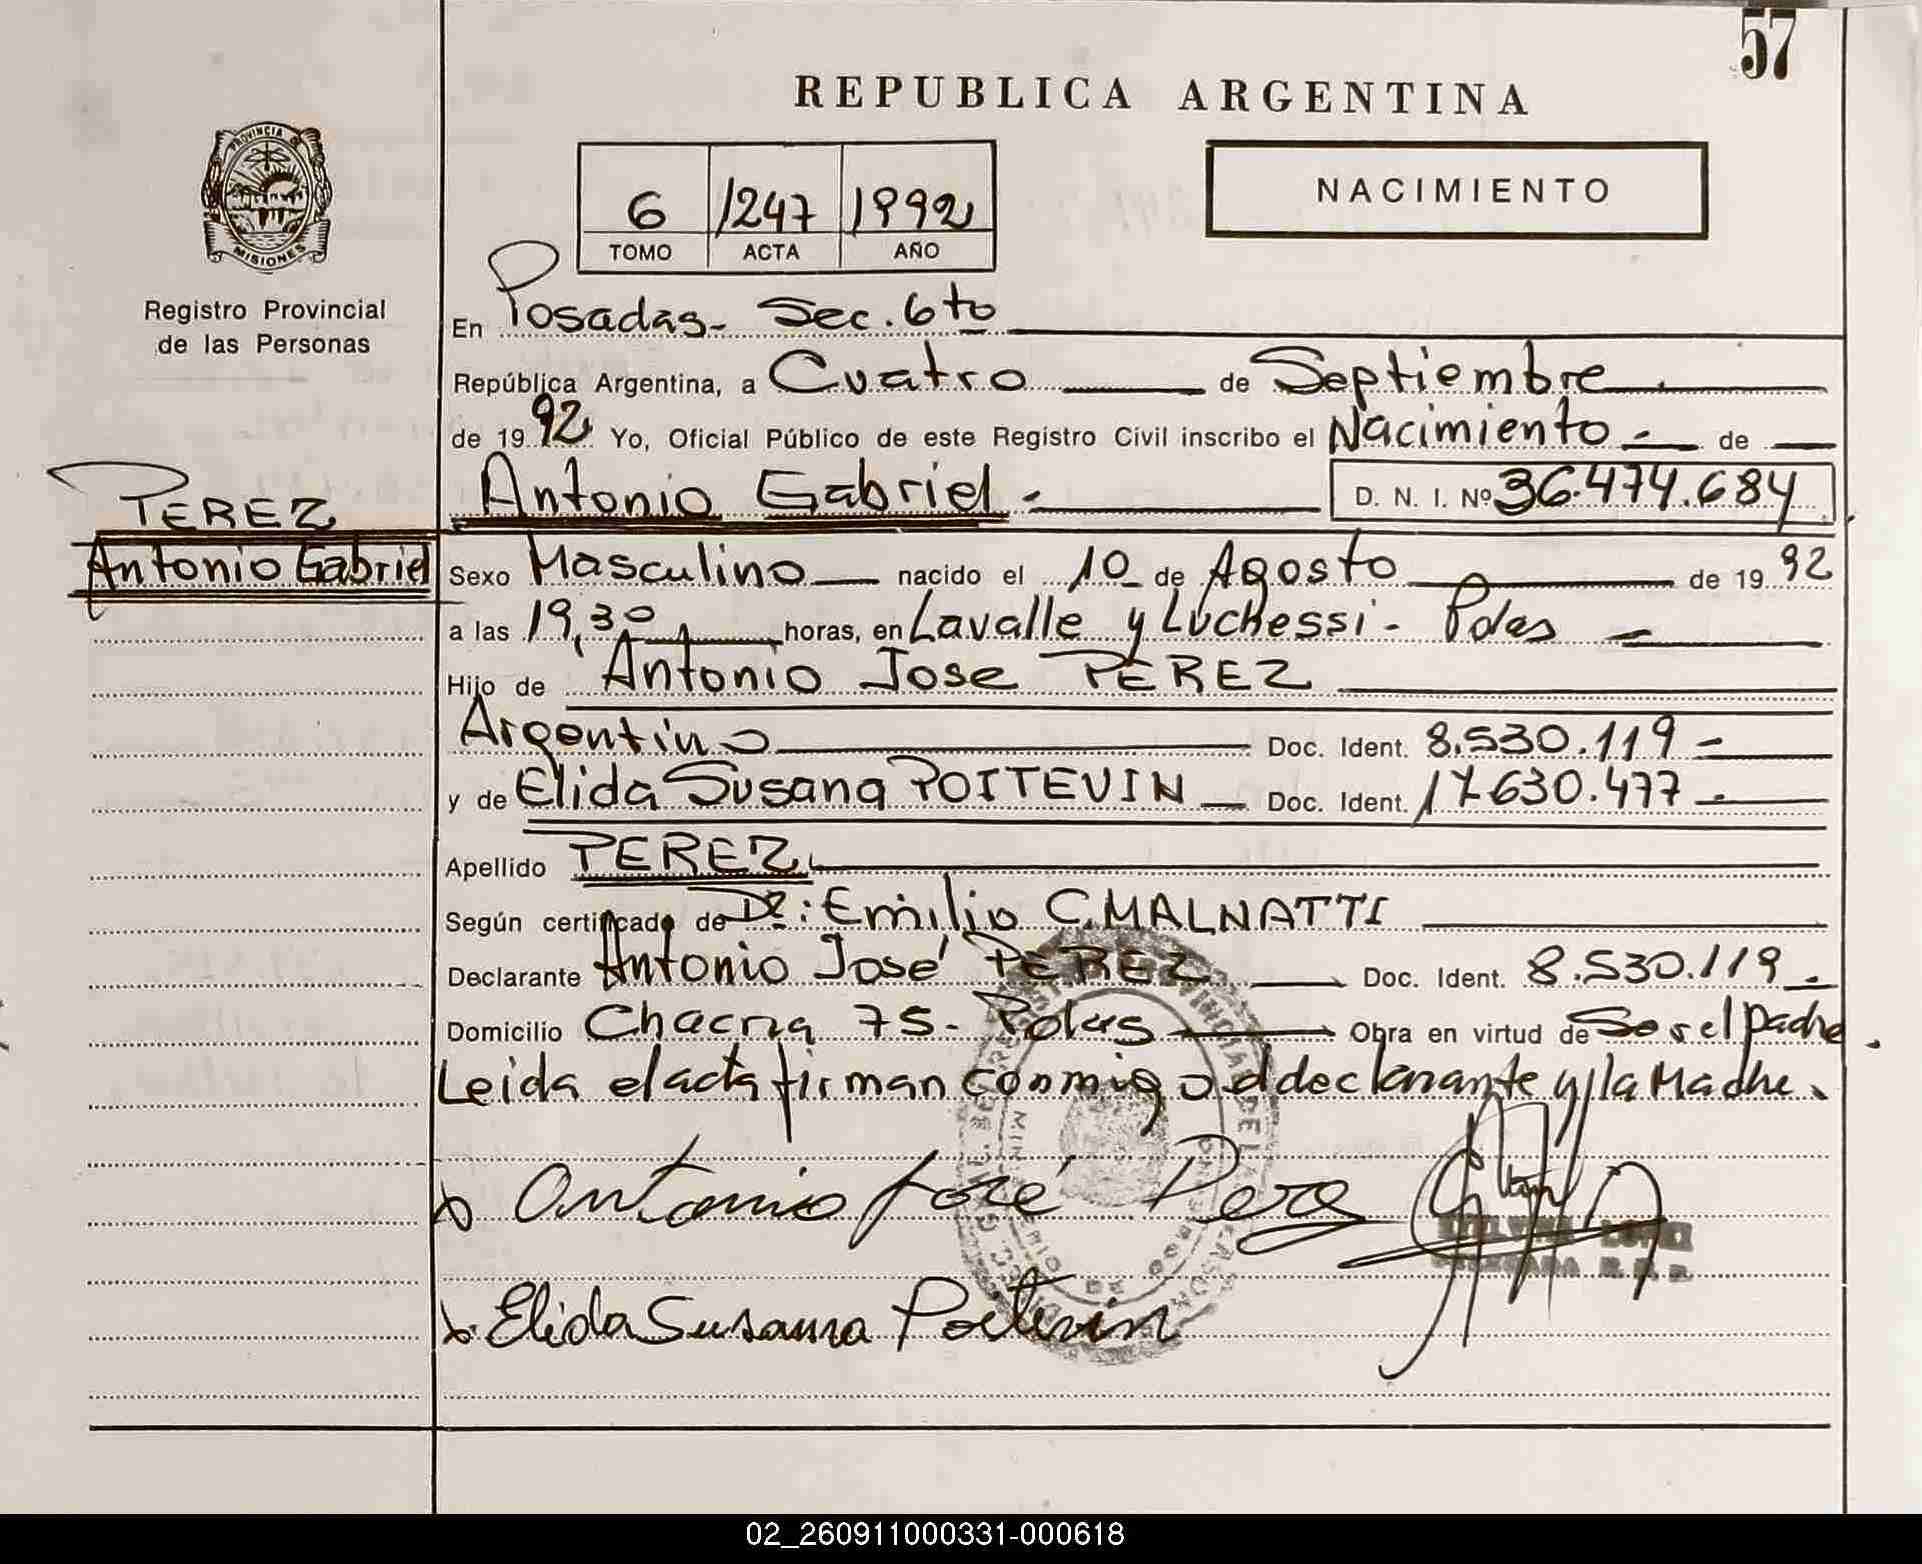 57
REPUBLICA ARGENTINA
PROVINCIA DE
MISIONES
6 1247 1992
TOMO ACTA AÑO
NACIMIENTO
Registro Provincial
de las Personas
En Posadas - Sec. 6to
República Argentina, a Cuatro de Septiembre
de 1992 Yo, Oficial Público de este Registro Civil inscribo el Nacimiento - de
Antonio Gabriel - D. N. I. Nº 36.474.684
PEREZ
Antonio Gabriel
Sexo Masculino nacido el 10 de Agosto de 1992
a las 19,30 horas, en Lavalle y Luchessi - Pdas
Hijo de Antonio Jose PEREZ
Argentino Doc. Ident. 8.530.119 -
y de Elida Susana POITEVIN Doc. Ident. 17630.477 -
Apellido PEREZ
Según certificado de Dr: Emilio C. MALNATTI
Declarante Antonio José PEREZ Doc. Ident. 8.530.119 -
Domicilio Chacra 75 - Pdas Obra en virtud de Ser el padre.
Leida el acta firman conmigo el declarante y la Madre.
Antonio José Perez
Elida Susana Poitevin
02_260911000331-000618